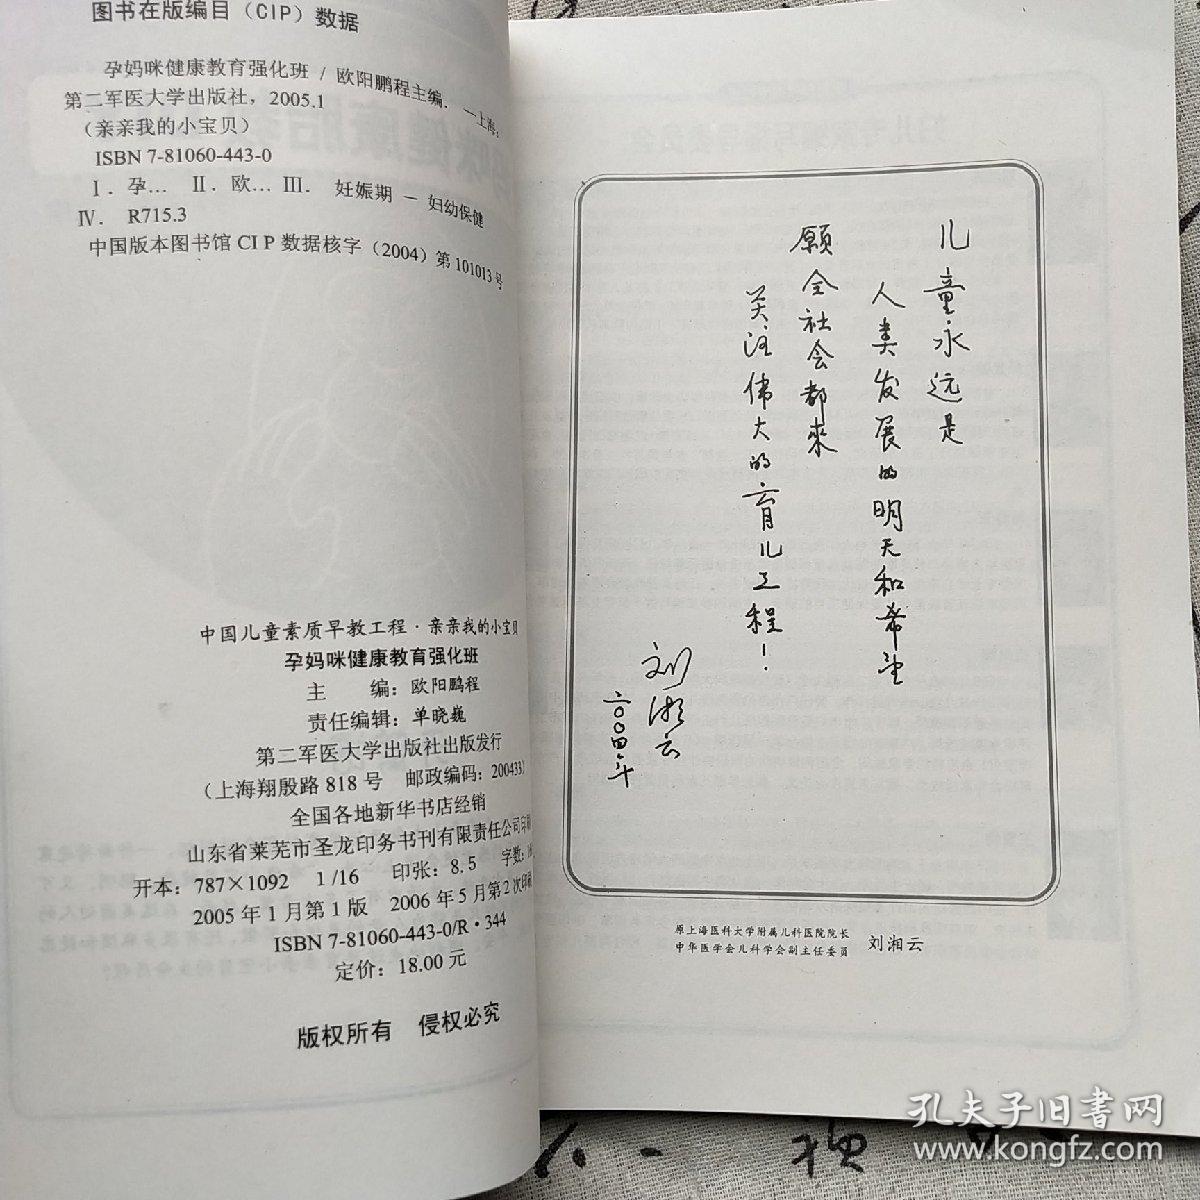 图书在版编目（CIP）数据
孕妈咪健康教育强化班 / 欧阳鹏程主编. —上海:
第二军医大学出版社，2005.1
（亲亲我的小宝贝）
ISBN 7-81060-443-0
Ⅰ. 孕… Ⅱ. 欧… Ⅲ. 妊娠期 － 妇幼保健
Ⅳ. R715.3
中国版本图书馆 CIP 数据核字（2004）第 101013 号
中国儿童素质早教工程·亲亲我的小宝贝
孕妈咪健康教育强化班
主 编：欧阳鹏程
责任编辑：单晓巍
第二军医大学出版社出版发行
（上海翔殷路 818 号 邮政编码：200433）
全国各地新华书店经销
山东省莱芜市圣龙印务书刊有限责任公司印刷
开本：787×1092 1/16 印张：8.5 字数：
2005 年 1 月第 1 版 2006 年 5 月第 2 次印刷
ISBN 7-81060-443-0/R·344
定价：18.00 元
版权所有 侵权必究
儿童永远是
人类发展的明天和希望
願全社会都來
关注伟大的育儿工程！
刘湘云
二〇〇四年
原上海医科大学附属儿科医院院长
中华医学会儿科学会副主任委员
刘湘云
孔夫子旧书网
www.kongfz.com